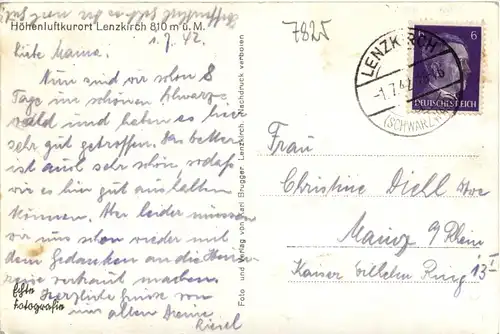 Höhenluftkurort Lenzkirch 810 m ü. M.
1. 7. 42
7825
Liebe Mama.
Nun sind wir schon 8
Tage im schönen Schwarz-
wald und haben es hier
sehr gut getroffen. Das Wetter
ist auch sehr schön sodaß
wir es hier gut aushalten
können. Aber leider müssen
wir uns schon wieder mit
dem Gedanken an die
reise vertraut machen.
Herzliche Grüße von
uns allen Deine
Echte
Fotografie
Foto und Verlag von Karl Brugger Lenzkirch Nachdruck verboten
LENZKIRCH
-1.7.42
(SCHWARZW
6
DEUTSCHES REICH
Frau
Christine Diehl Wwe
Mainz a/Rhein
Kaiser Wilhelm Ring 13 I